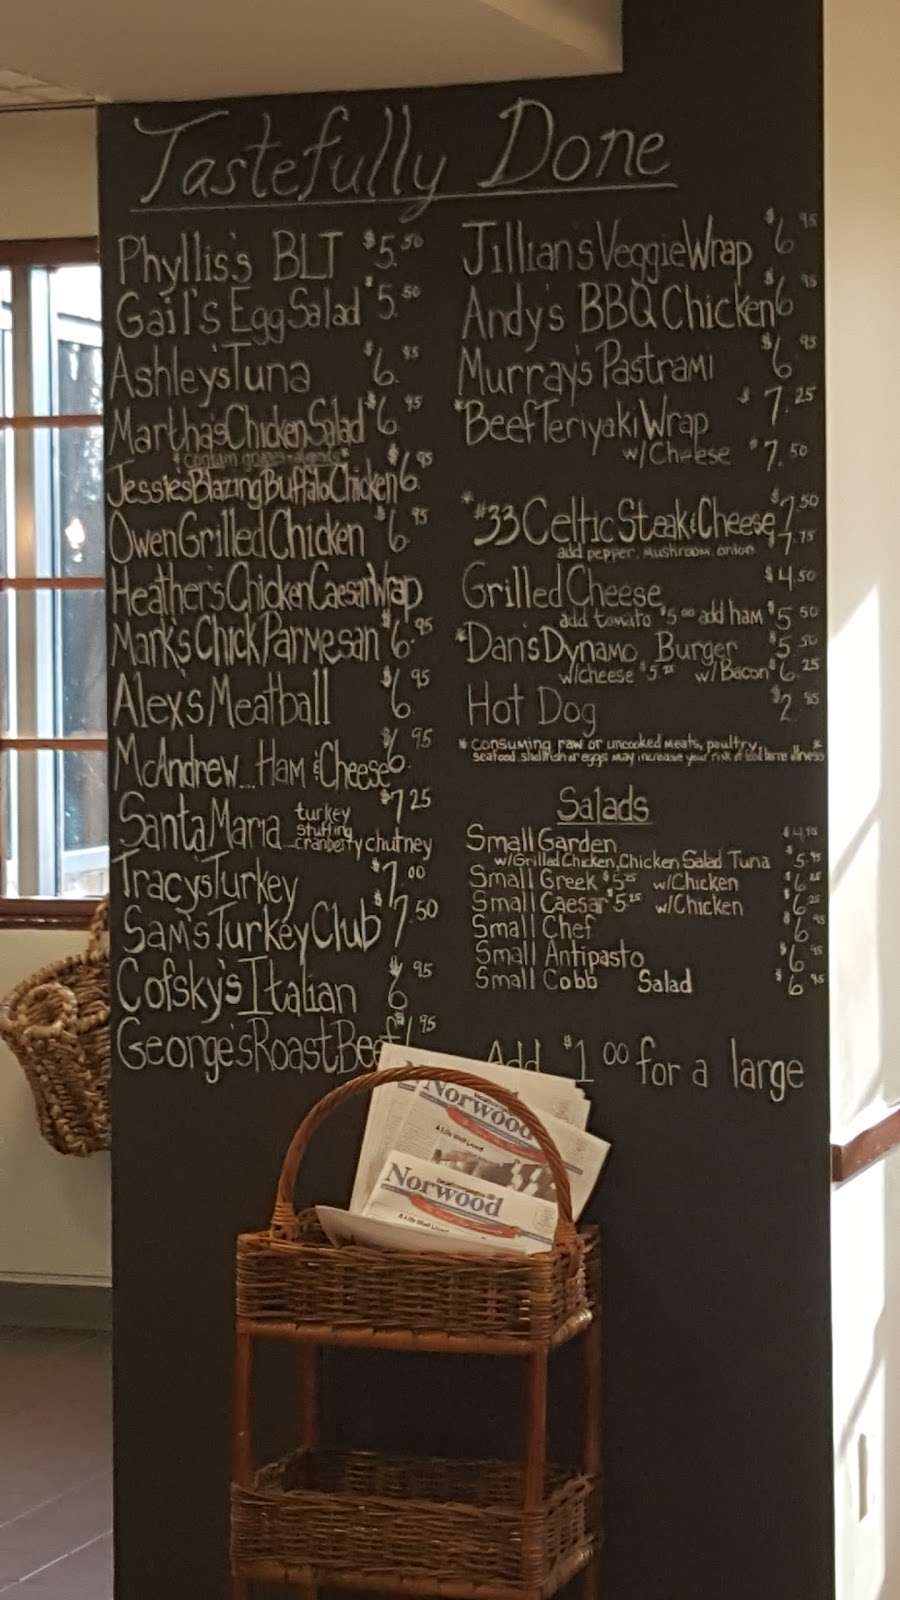 Tastefully Done
Phyllis's BLT $5.50
Gail's Egg Salad $5.50
Ashley's Tuna $6.95
Martha's Chicken Salad $6.95
Jessie's Blazing Buffalo Chicken $6.95
Owen Grilled Chicken $6.95
Heather's Chicken Caesar Wrap
Mark's Chick Parmesan $6.95
Alex's Meatball $6.95
McAndrew... Ham & Cheese $6.95
Santa Maria turkey stuffing cranberry chutney $7.25
Tracy's Turkey $7.00
Sam's Turkey Club $7.50
Cofsky's Italian $6.95
George's Roast Beef 6.95
Jillian's Veggie Wrap $6.95
Andy's BBQ Chicken $6.95
Murray's Pastrami $6.95
*Beef Teriyaki Wrap $7.25
w/Cheese $7.50
*#33 Celtic Steak & Cheese $7.50
add pepper, mushroom, onion $7.75
Grilled Cheese $4.50
add tomato $5.00 add ham $5.50
*Dan's Dynamo Burger $5.50
w/cheese $5.75 w/Bacon $6.25
Hot Dog $2.85
* Consuming raw or uncooked meats, poultry, *
seafood, shellfish or eggs may increase your risk of food borne illness
Salads
Small Garden $4.95
w/Grilled Chicken, Chicken Salad, Tuna $5.95
Small Greek $5.25 w/Chicken $6.25
Small Caesar $5.25 w/Chicken $6.25
Small Chef $6.95
Small Antipasto $6.95
Small Cobb Salad $6.95
Add $1.00 for a large
Norwood
A Life Well Lived
Norwood
A Life Well Lived